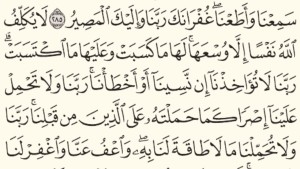 سَمِعْنَا وَأَطَعْنَا ۖ غُفْرَانَكَ رَبَّنَا وَإِلَيْكَ الْمَصِيرُ ۝٢٨٥ لَا يُكَلِّفُ
اللَّهُ نَفْسًا إِلَّا وُسْعَهَا ۚ لَهَا مَا كَسَبَتْ وَعَلَيْهَا مَا اكْتَسَبَتْ ۗ
رَبَّنَا لَا تُؤَاخِذْنَا إِن نَّسِينَا أَوْ أَخْطَأْنَا ۚ رَبَّنَا وَلَا تَحْمِلْ
عَلَيْنَا إِصْرًا كَمَا حَمَلْتَهُ عَلَى الَّذِينَ مِن قَبْلِنَا ۚ رَبَّنَا
وَلَا تُحَمِّلْنَا مَا لَا طَاقَةَ لَنَا بِهِ ۖ وَاعْفُ عَنَّا وَاغْفِرْ لَنَا